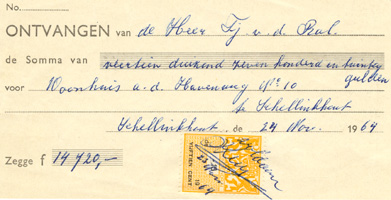 No.
ONTVANGEN van de Heer Tj. v. d. Bal.
de Somma van veertien duizend zeven honderd en twintig
gulden
voor Woonhuis a. d. Havenweg No 10
te Schellinkhout
Schellinkhout, de 24 Nov. 1964
Zegge f 14720,-
VIJFTIEN CENT
64